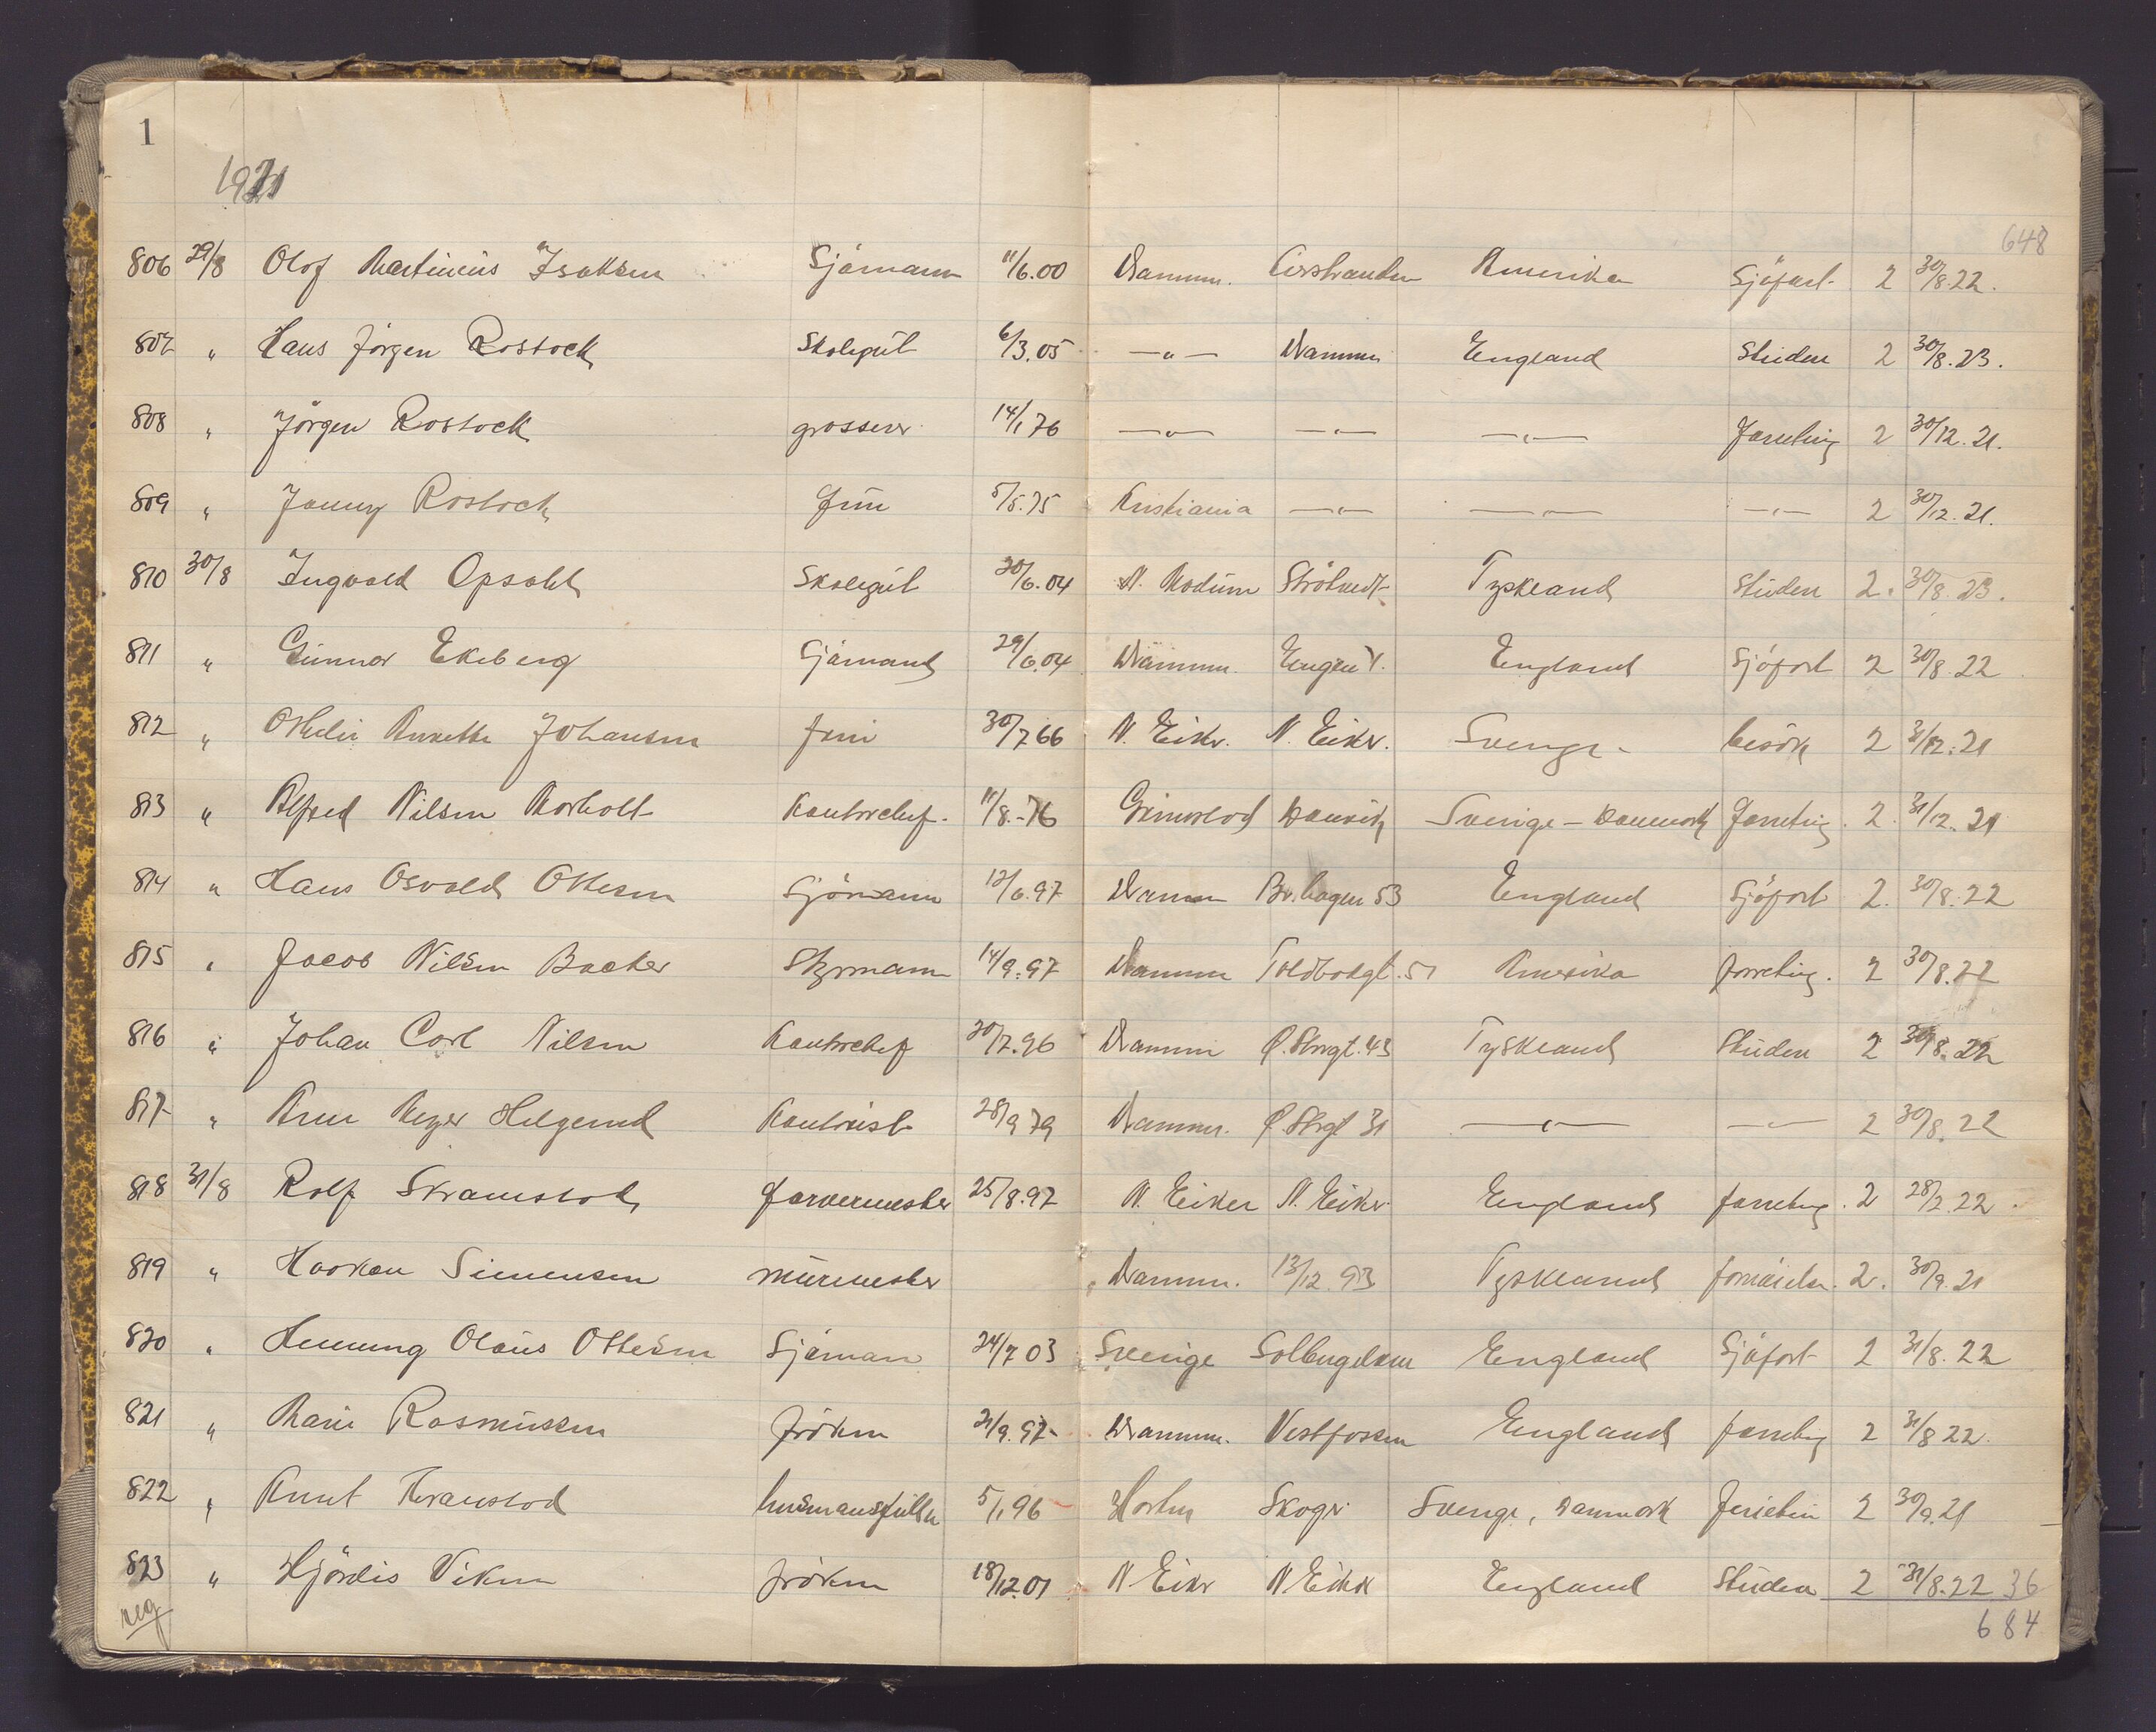 1
1921
648
806 29/8 Olof Martinius Isaksen Sjömann 11/6.00 Drammen. Amerika Sjöfart 2 30/8.22.
807 " Hans Jörgen Rostock Skolegut 6/3.05 —"— Drammen England Studier 2 30/8.23.
808 " Jörgen Rostock grosserer 14/1 76 —"— —"— —"— Forretning 2 30/12.21.
809 " Jenny Rostock Frue 5/5.75 Kristiania —"— —"— —"— 2 30/12.21.
810 30/8 Ingvald Opsahl Skolegut 20/6.04 N. Modum Tyskland Studier 2. 30/8.23.
811 " Gunnar Ekeberg Sjömand 29/6.04 Drammen. England Sjöfart 2 30/8.22
812 " Othelie Annette Johansen frue 30/7 66 N. Eiker. N. Eiker. Sverige besök 2 31/12.21
813 " Alfred Nilsen Morholt Kontorchef. 11/8.-76 Grimstad Danvik Sverige - Danmark Forretning. 2. 31/12.21
814 " Hans Osvald Ottesen Sjömann 12/6.97 Drammen Br.hagen 53 England Sjöfart 2. 30/8.22
815 " Jacob Nilsen Backer Styrmann 14/9.97 Drammen Toldbodgt. 51 Amerika forretning. 2 30/8.22
816 " Johan Carl Nilsen Kontorchef 20/7.96 Drammen Ø. Strgt. 43 Tyskland Studier 2 30/8.22
817 " Meyer Helgerud Kontorist 28/9 79 Drammen. Ø. Strgt 31 —"— —"— 2 30/8.22
818 31/8 Rolf Skramstad Garvermester 25/8.97 N. Eiker N. Eiker. England forretning. 2 28/2.22.
819 " Haakon Simensen murmester Drammen. 13/12.93 Tyskland 2. 30/9.21
820 " Henning Olaus Ottesen Sjöman 24/7 03 Sverige England Sjöfart 2 31/8.22
821 " Marie Rasmussen fröken 21/9.97- Drammen. Vestfossen England forretning 2 31/8 22.
822 " Knut Transtad 5/1 96 Horten Skoger Sverige, Danmark 2 30/9.21
823 " Hjördis Viken fröken 18/12.01 N Eiker N Eiker England Studier 2 31/8.22 36
684